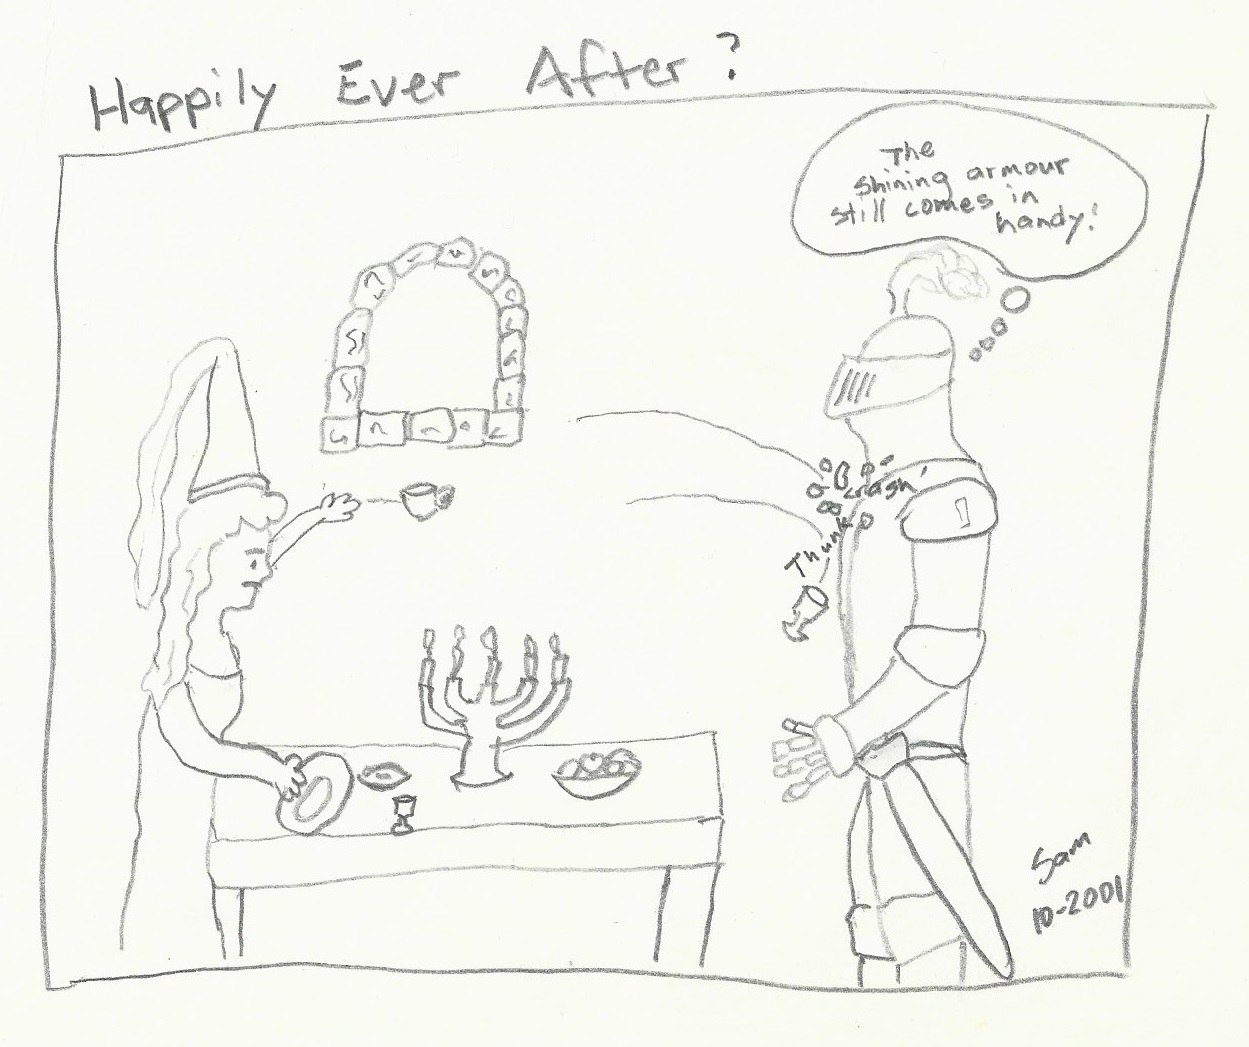 Happily Ever After?
The
shining armour
still comes in
handy!
Crash!
Thunk
Sam
10-2001